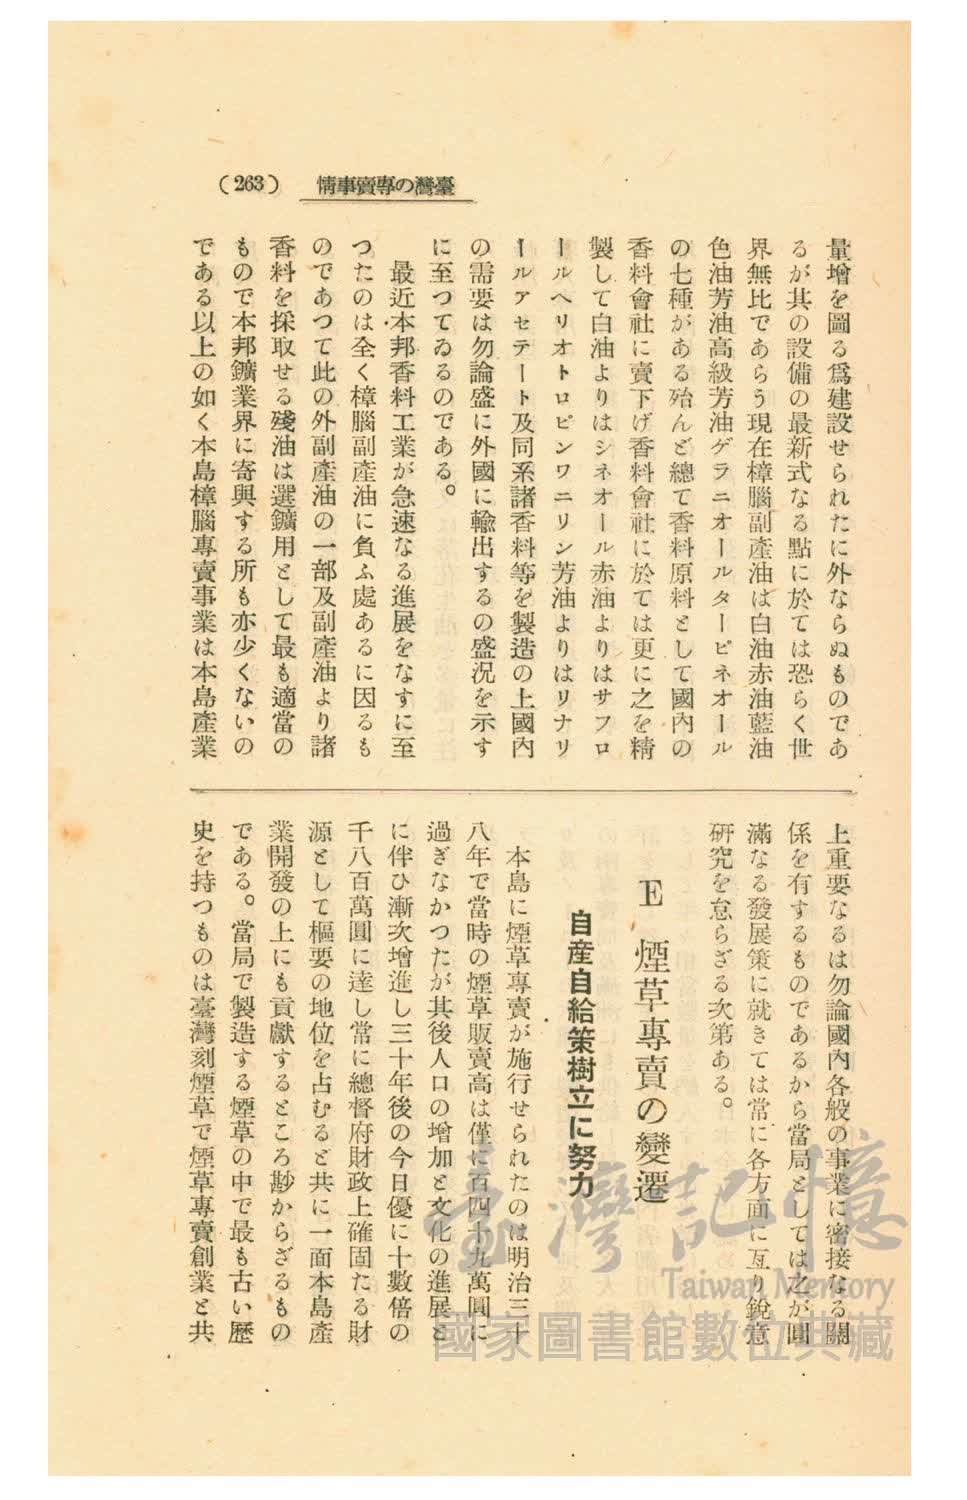 (263) 情事賣專の灣臺
量增を圖る爲建設せられたに外ならぬものであ
るが其の設備の最新式なる點に於ては恐らく世
界無比であらう現在樟腦副產油は白油赤油藍油
色油芳油高級芳油ゲラニオールターピネオール
の七種がある殆んど總て香料原料として國內の
香料會社に賣下げ香料會社に於ては更に之を精
製して白油よりはシネオール赤油よりはサフロ
ールヘリオトロピンワニリン芳油よりはリナリ
ールアセテート及同系諸香料等を製造の上國內
の需要は勿論盛に外國に輸出するの盛況を示す
に至つてゐるのである。
最近本邦香料工業が急速なる進展をなすに至
つたのは全く樟腦副產油に負ふ處あるに因るも
のであつて此の外副產油の一部及副產油より諸
香料を採取せる殘油は選鑛用として最も適當の
もので本邦鑛業界に寄與する所も亦少くないの
である以上の如く本島樟腦專賣事業は本島產業
上重要なるは勿論國內各般の事業に密接なる關
係を有するものであるから當局としては之が圓
滿なる發展策に就きては常に各方面に亙り銳意
硏究を怠らざる次第ある。
E 煙草專賣の變遷
自産自給策樹立に努力
本島に煙草專賣が施行せられたのは明治三十
八年で當時の煙草販賣高は僅に百四十九萬圓に
過ぎなかつたが其後人口の增加と文化の進展と
に伴ひ漸次增進し三十年後の今日優に十數倍の
千八百萬圓に達し常に總督府財政上確固たる財
源として樞要の地位を占むると共に一面本島產
業開發の上にも貢獻するところ尠からざるもの
である。當局で製造する煙草の中で最も古い歷
史を持つものは臺灣刻煙草で煙草專賣創業と共
臺灣記憶
Taiwan Memory
國家圖書館數位典藏